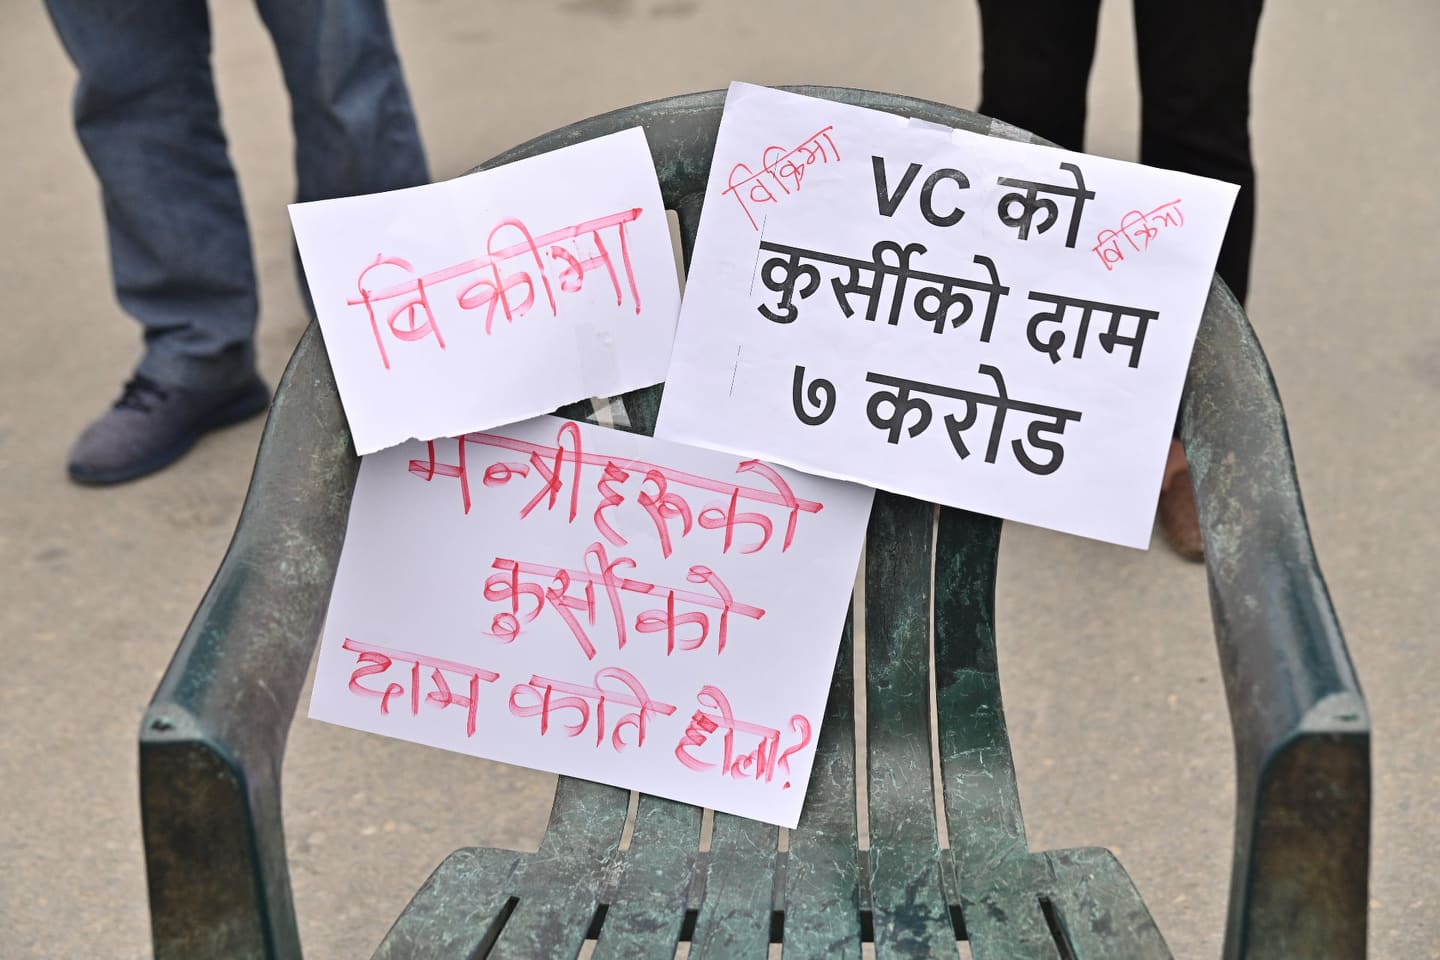 बिक्रीमा
बिक्रिमा
VC को
बिक्रिमा
कुर्सीको दाम
७ करोड
मन्त्रीहरूको
कुर्सीको
दाम कति होला?